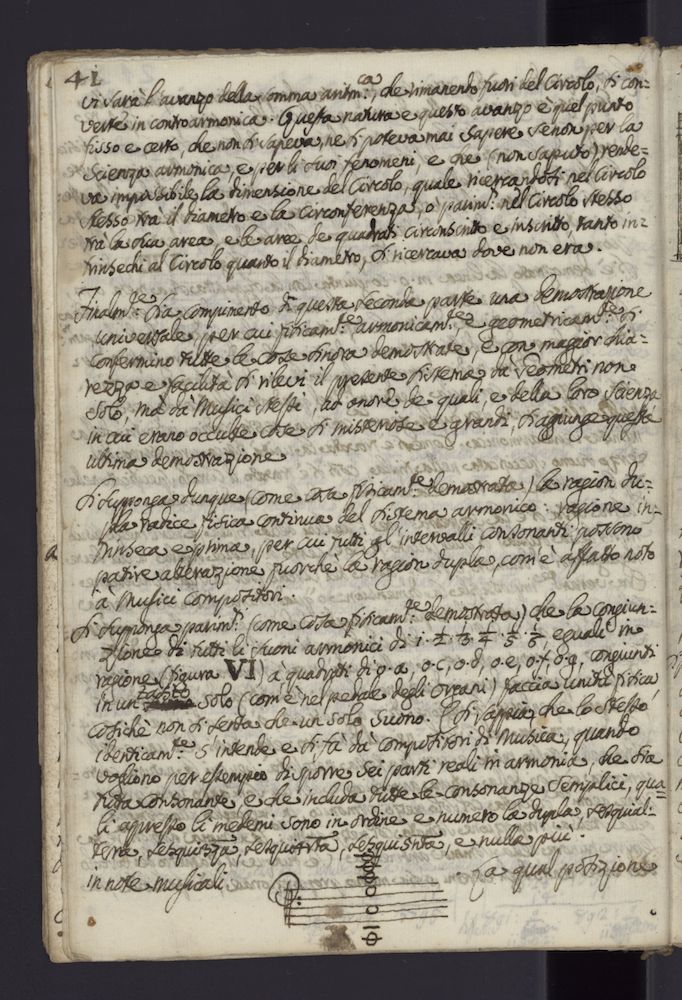 41
vi sarà l'avanzo della somma aritm.ca, che rimanendo fuori del Circolo, si con=
verte in controarmonica. Questa natura e questo avanzo è quel punto
fisso e certo, che non si sapeva, ne si poteva mai sapere se non per la
Scienza armonica, e per li suoi fenomeni, e che (non saputo) rende=
va impossibile la dimensione del Circolo, quale ricercandosi nel Circolo
stesso tra il diametro e la circonferenza, o parim.e nel Circolo stesso
tra la sua area, e le aree de quadrati circonscritto e inscritto, tanto in=
trinsechi al Circolo quanto il diametro, si ricercava dove non era.
Finalm.te sia compimento di questa seconda parte una demostrazione
universale, per cui fisicam.te armonicam.te, e geometricam.te si
confermino tutte le cose sinora demostrate, e con maggior chia=
rezza e facilità si rilevi il presente sistema da Geometri non
solo, mà dà Musici stessi, ad onore de quali, e della loro scienza
in cui erano occulte cose sì misteriose e grandi, si aggiunge questa
ultima demostrazione
Si supponga dunque (come cosa fisicam.te demostrata) la ragion du=
pla radice fisica continua del sistema armonico: ragione in=
trinseca e prima, per cui tutti gl'intervalli consonanti possono
patire alterazione fuorchè la ragion dupla, com'è affatto noto
à Musici Compositori.
Si supponga parim.e (come cosa fisicam.te demostrata) che la congiun=
zione di tutti li suoni armonici di 1. 1/2. 1/3. 1/4. 1/5. 1/6, eguali in
ragione (figura VI) à quadrati di o.a, o.c, o.d, o.e, o.f, o.g, congiunti
in un tasto solo (com'è nel pedale degli Organi) faccia unità fisica
cosichè non si senta che un solo suono. E si sappia, che lo stesso
identicam.te s'intende e si fà dà Compositori di Musica, quando
vogliono per essempio disporre sei parti reali in armonia, che sia
tutta consonante, e che includa tutte le consonanze semplici, qua=
li appresso li medemi sono in ordine e numero la dupla, sesquial=
tera, sesquiterza, sesquiquarta, sesquiquinta, e nulla più.
La qual posizione
in note musicali